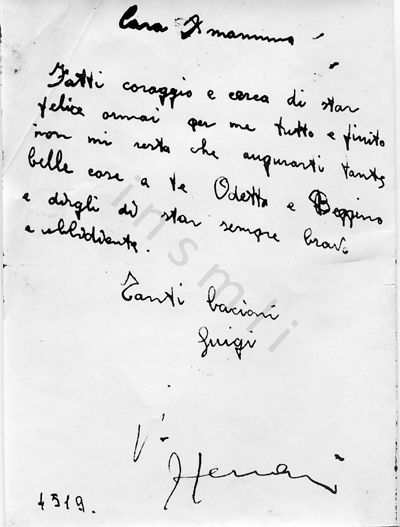 Cara Mammina
Fatti coraggio e cerca di star
felice ormai per me tutto e finito
non mi resta che augurarti tante
belle cose a te Odetta e Beppino
e dirgli di star sempre bravi
e ubbidiente.
Tanti bacioni
Luigi
V.
4519.
insmli